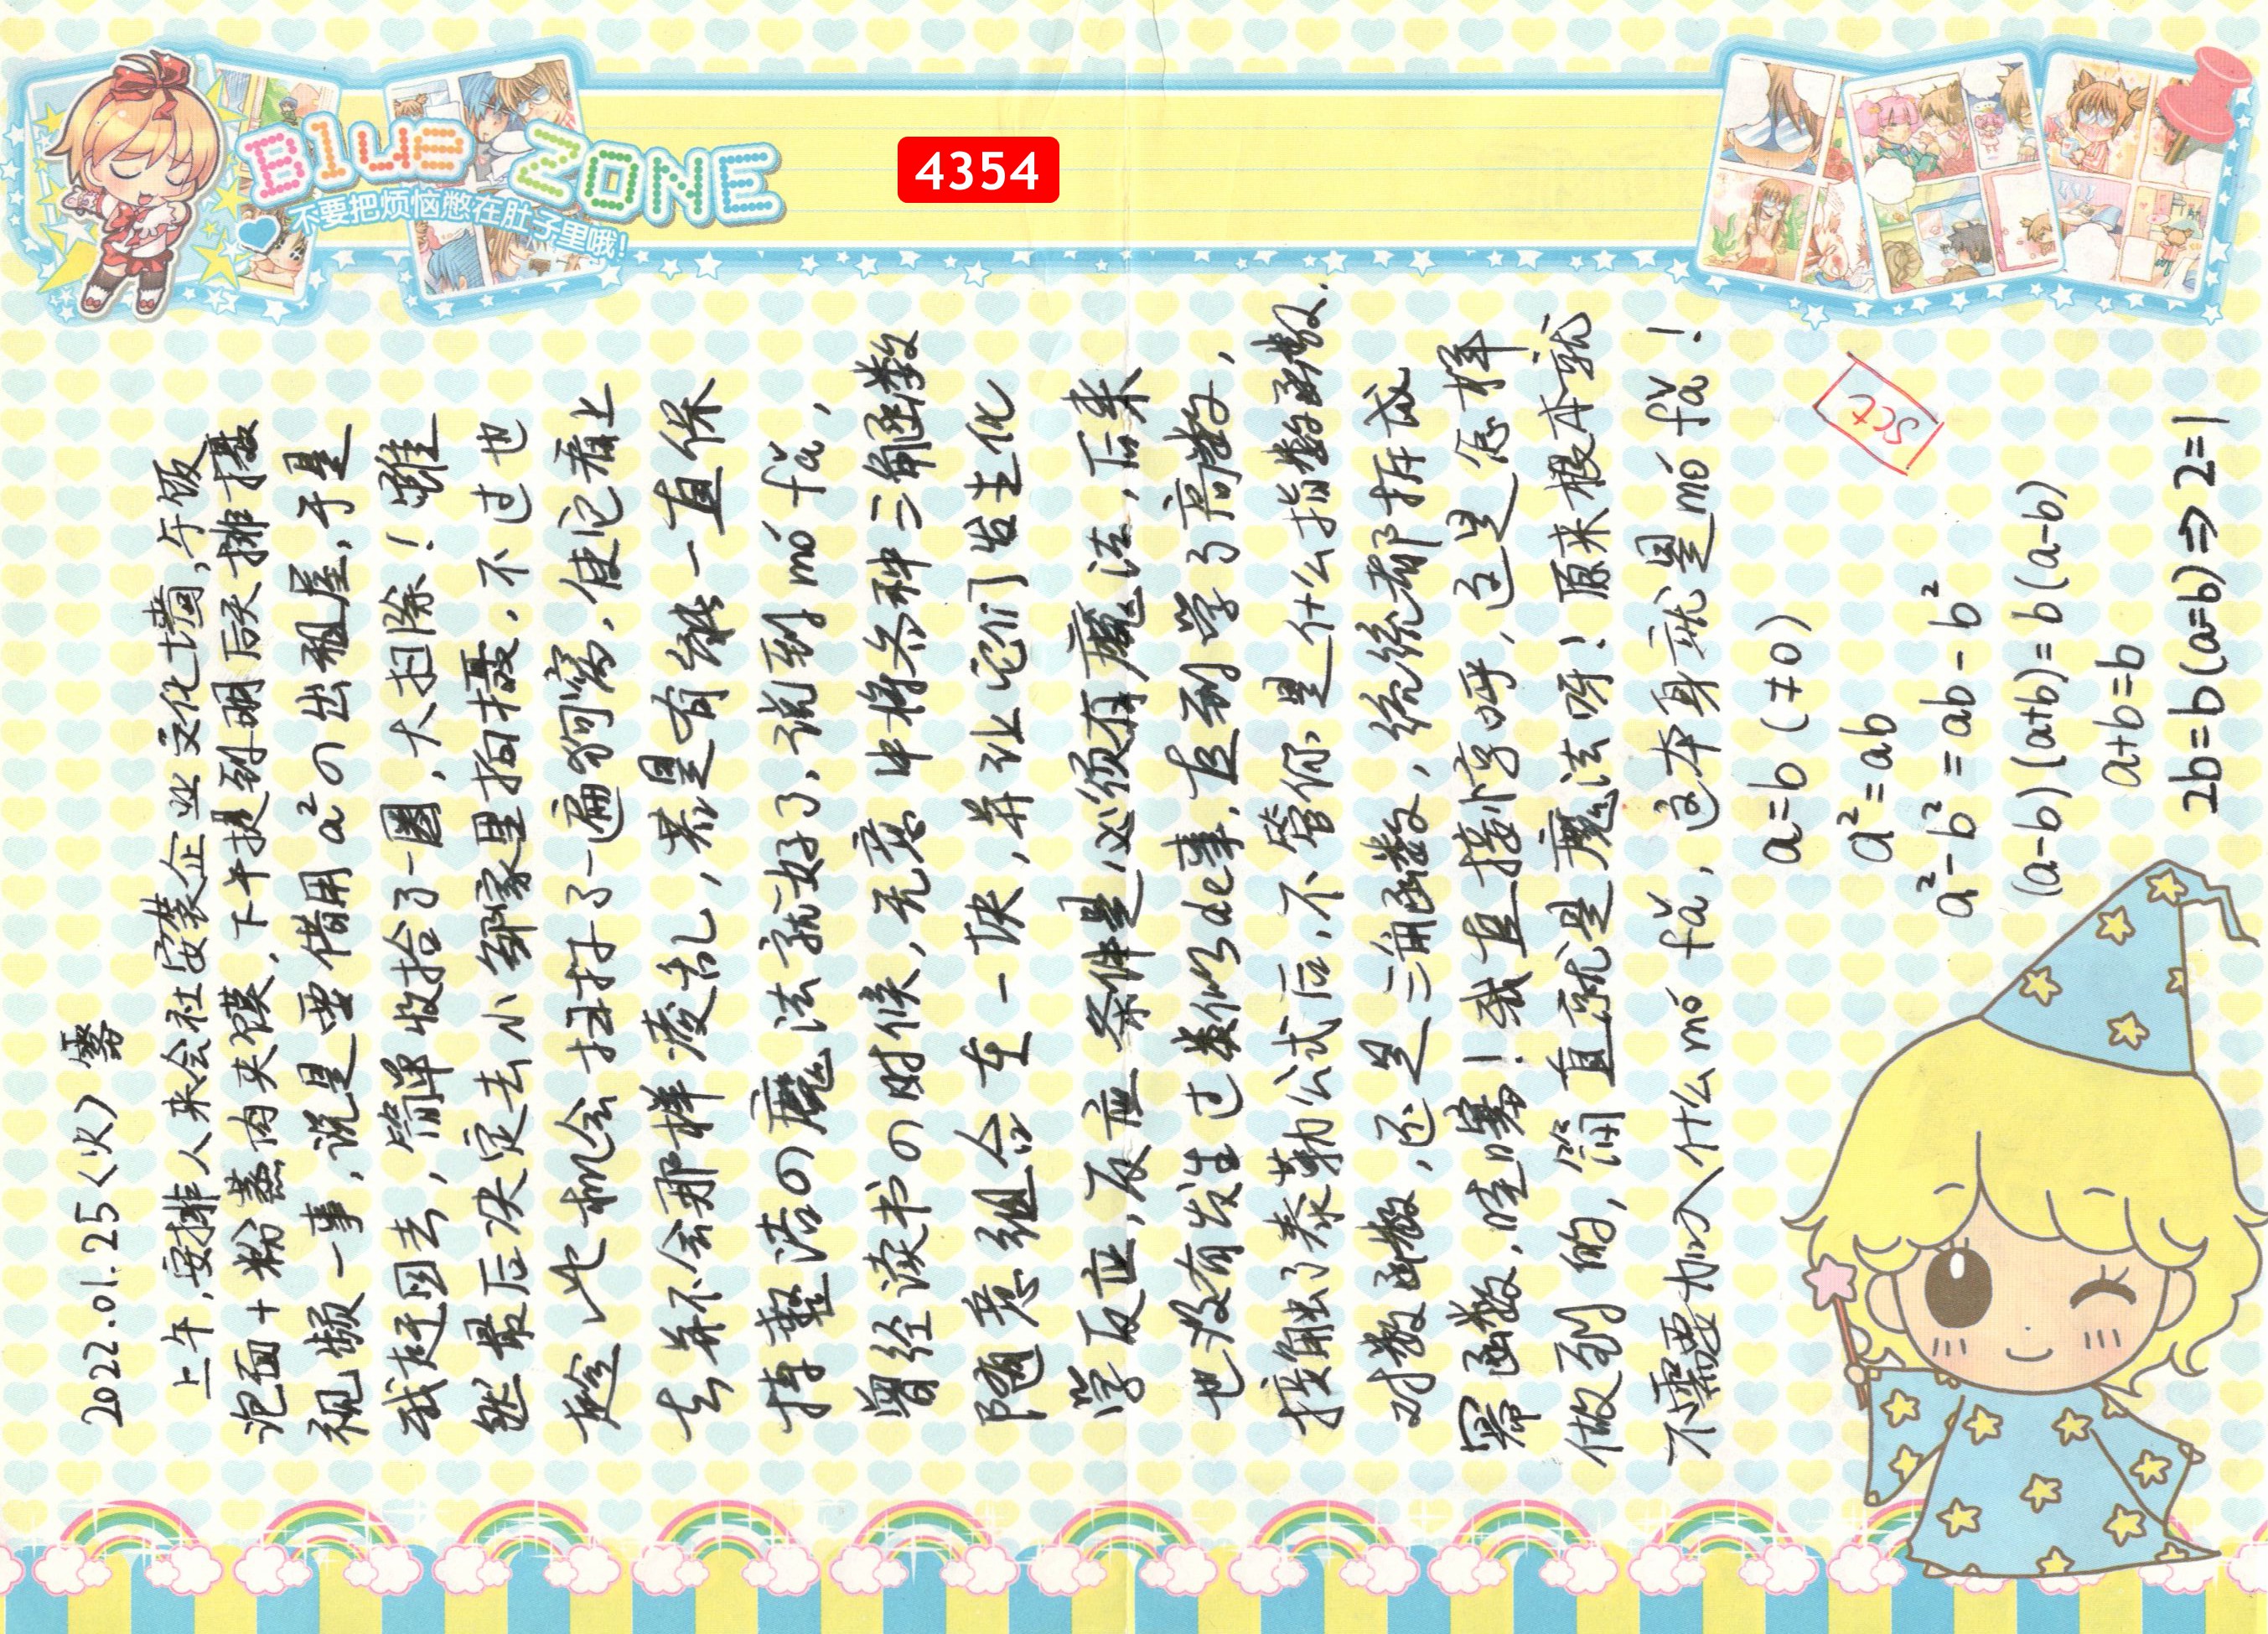 Blue ZONE
不要把烦恼憋在肚子里哦!
4354
2022.01.25 <火> 雾
上午,安排人来会社安装企业文化墙,午饭
泡面+粉蒸肉夹馍,下午提到明后天排摄
视频一事,说是要借用a²の出租屋,于是
我赶回去,简单收拾了一圈,大扫除!虽
然最后决定去小邹家里拍摄,不过也
趁此机会扫打了一遍狗窝,使它看上
去并不会那样凌乱,若是有能一直保
持整洁の魔法就好了,说到mó fǎ,
曾经读书の时候,无意中将各种三角函数
随意组合在一块,并让它们发生化
学反应,反应条件是必须有魔法,后来
也没有发生过类似de事,直到学了高数,
接触了泰勒公式后,不管你是什么指数函数,
对数函数,还是三角函数,统统都拆成
幂函数,哇噻!我直接惊呼,这是怎样
做到的,简直就是魔法呀!原来根本就
不需要加入什么mó fǎ,这本身就是mó fǎ!
sct
a=b (≠0)
a²=ab
a²-b²=ab-b²
(a-b)(a+b)=b(a-b)
a+b=b
2b=b(a=b)⇒2=1